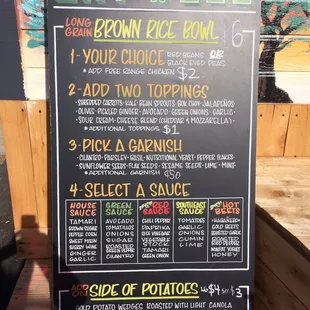 LONG GRAIN BROWN RICE BOWL $6
1-YOUR CHOICE RED BEANS OR BLACK EYED PEAS
• ADD FREE RANGE CHICKEN $2
2-ADD TWO TOPPINGS
• SHREDDED CARROTS • KALE • BEAN SPROUTS • BOK CHOY • JALAPEÑOS •
OLIVES • PICKLED GINGER • AVOCADO • GREEN ONIONS • GARLIC •
SOUR CREAM • CHEESE BLEND (CHEDDAR & MOZZARELLA) •
• ADDITIONAL TOPPINGS $1
3-PICK A GARNISH
• CILANTRO • PARSLEY • BASIL • NUTRITIONAL YEAST • PEPPER FLAKES •
SUNFLOWER SEEDS • FLAX SEEDS • SESAME SEEDS • LIME • MINT •
• ADDITIONAL GARNISH $.50
4-SELECT A SAUCE
HOUSE SAUCE
TAMARI
BROWN SUGAR
PEPPER CORN
SWEET MIRIN
SHERRY WINE
GINGER
GARLIC
GREEN SAUCE
AVOCADO
TOMATILLOS
ONIONS
SUGAR
ROASTED
GREEN PEPPER
CILANTRO
RED SAUCE
CHILI PEPPER
PAPRIKA
RICE VINEGAR
VEGETABLE STOCK
TAMARI
GREEN ONION
SOUTHEAST SAUCE
TOMATOES
GARLIC
ONIONS
CUMIN
LIME
HOT BEETS
HABAÑERO
GOLD BEETS
ROASTED GARLIC
ROASTED
RED PEPPER
HONEY
ADD ON SIDE OF POTATOES $4 $3
GOLD POTATO WEDGES, ROASTED WITH LIGHT CANOLA